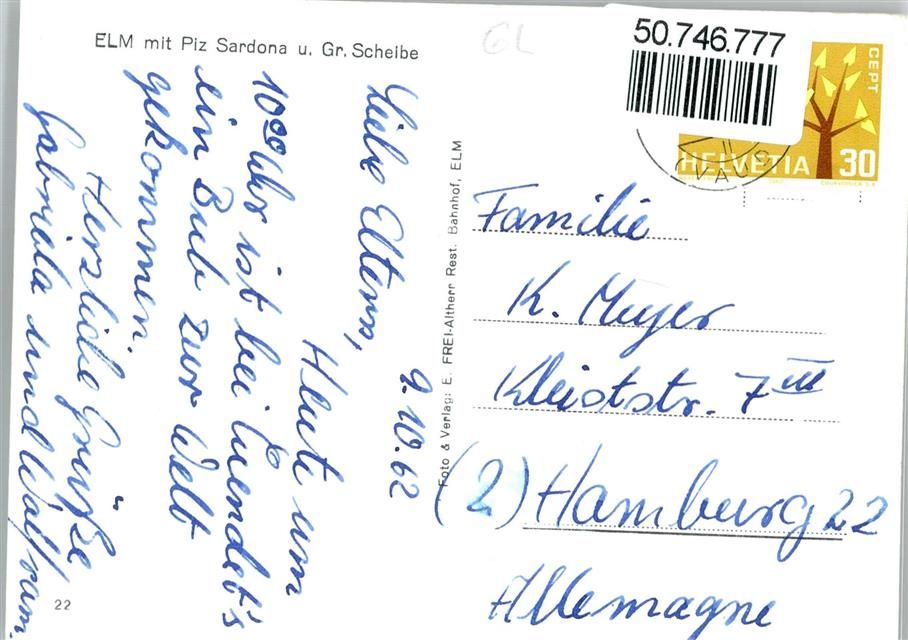 ELM mit Piz Sardona u. Gr. Scheibe
GL
50.746.777
CEPT
HELVETIA 30
COURVOISIER S.A.
9.10.62
Liebe Eltern,
Heute um
10⁰⁰ Uhr ist bei Cuendet's
ein Bub zur Welt
gekommen.
Herzliche Grüße
Gabriela und Wolfram.
22
Foto & Verlag: E. FREI-Altherr Rest. Bahnhof, ELM
Familie
K. Meyer
Kleiststr. 7 III
(2) Hamburg 22
Allemagne